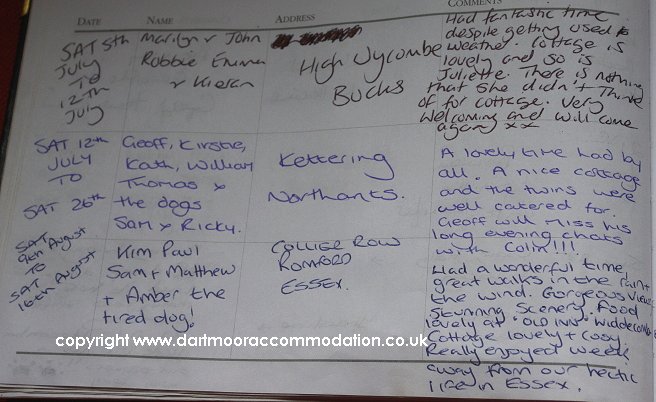 DATE NAME ADDRESS COMMENTS
SAT 5th
JULY
TO
12TH
JULY
Marilyn & John
Robbie Emma
& Kieran
High Wycombe
Bucks
Had fantastic time
despite getting used
weather. Cottage is
lovely and so is
Juliette. There is nothing
that she didn't think
of for cottage. Very
welcoming and will come
again xx
SAT 12th
JULY
TO
SAT 26th
Geoff, Kirstie,
Kath, William
Thomas &
the dogs
Sam & Ricky.
Kettering
Northants.
A lovely time had by
all. A nice cottage
and the twins were
well catered for.
Geoff will miss his
long evening chats
with Colin!!!
SAT
9th August
TO
SAT
16th August
Kim Paul
Sam + Matthew
+ Amber the
tired dog!
COLLIER ROW
ROMFORD
ESSEX.
Had a wonderful time,
great walks in the rain +
the wind. Gorgeous views
Stunning Scenery. Food
lovely at "OLD INN" Widdecombe
Cottage lovely + cosy.
Really enjoyed week
away from our hectic
life in Essex.
copyright www.dartmooraccommodation.co.uk